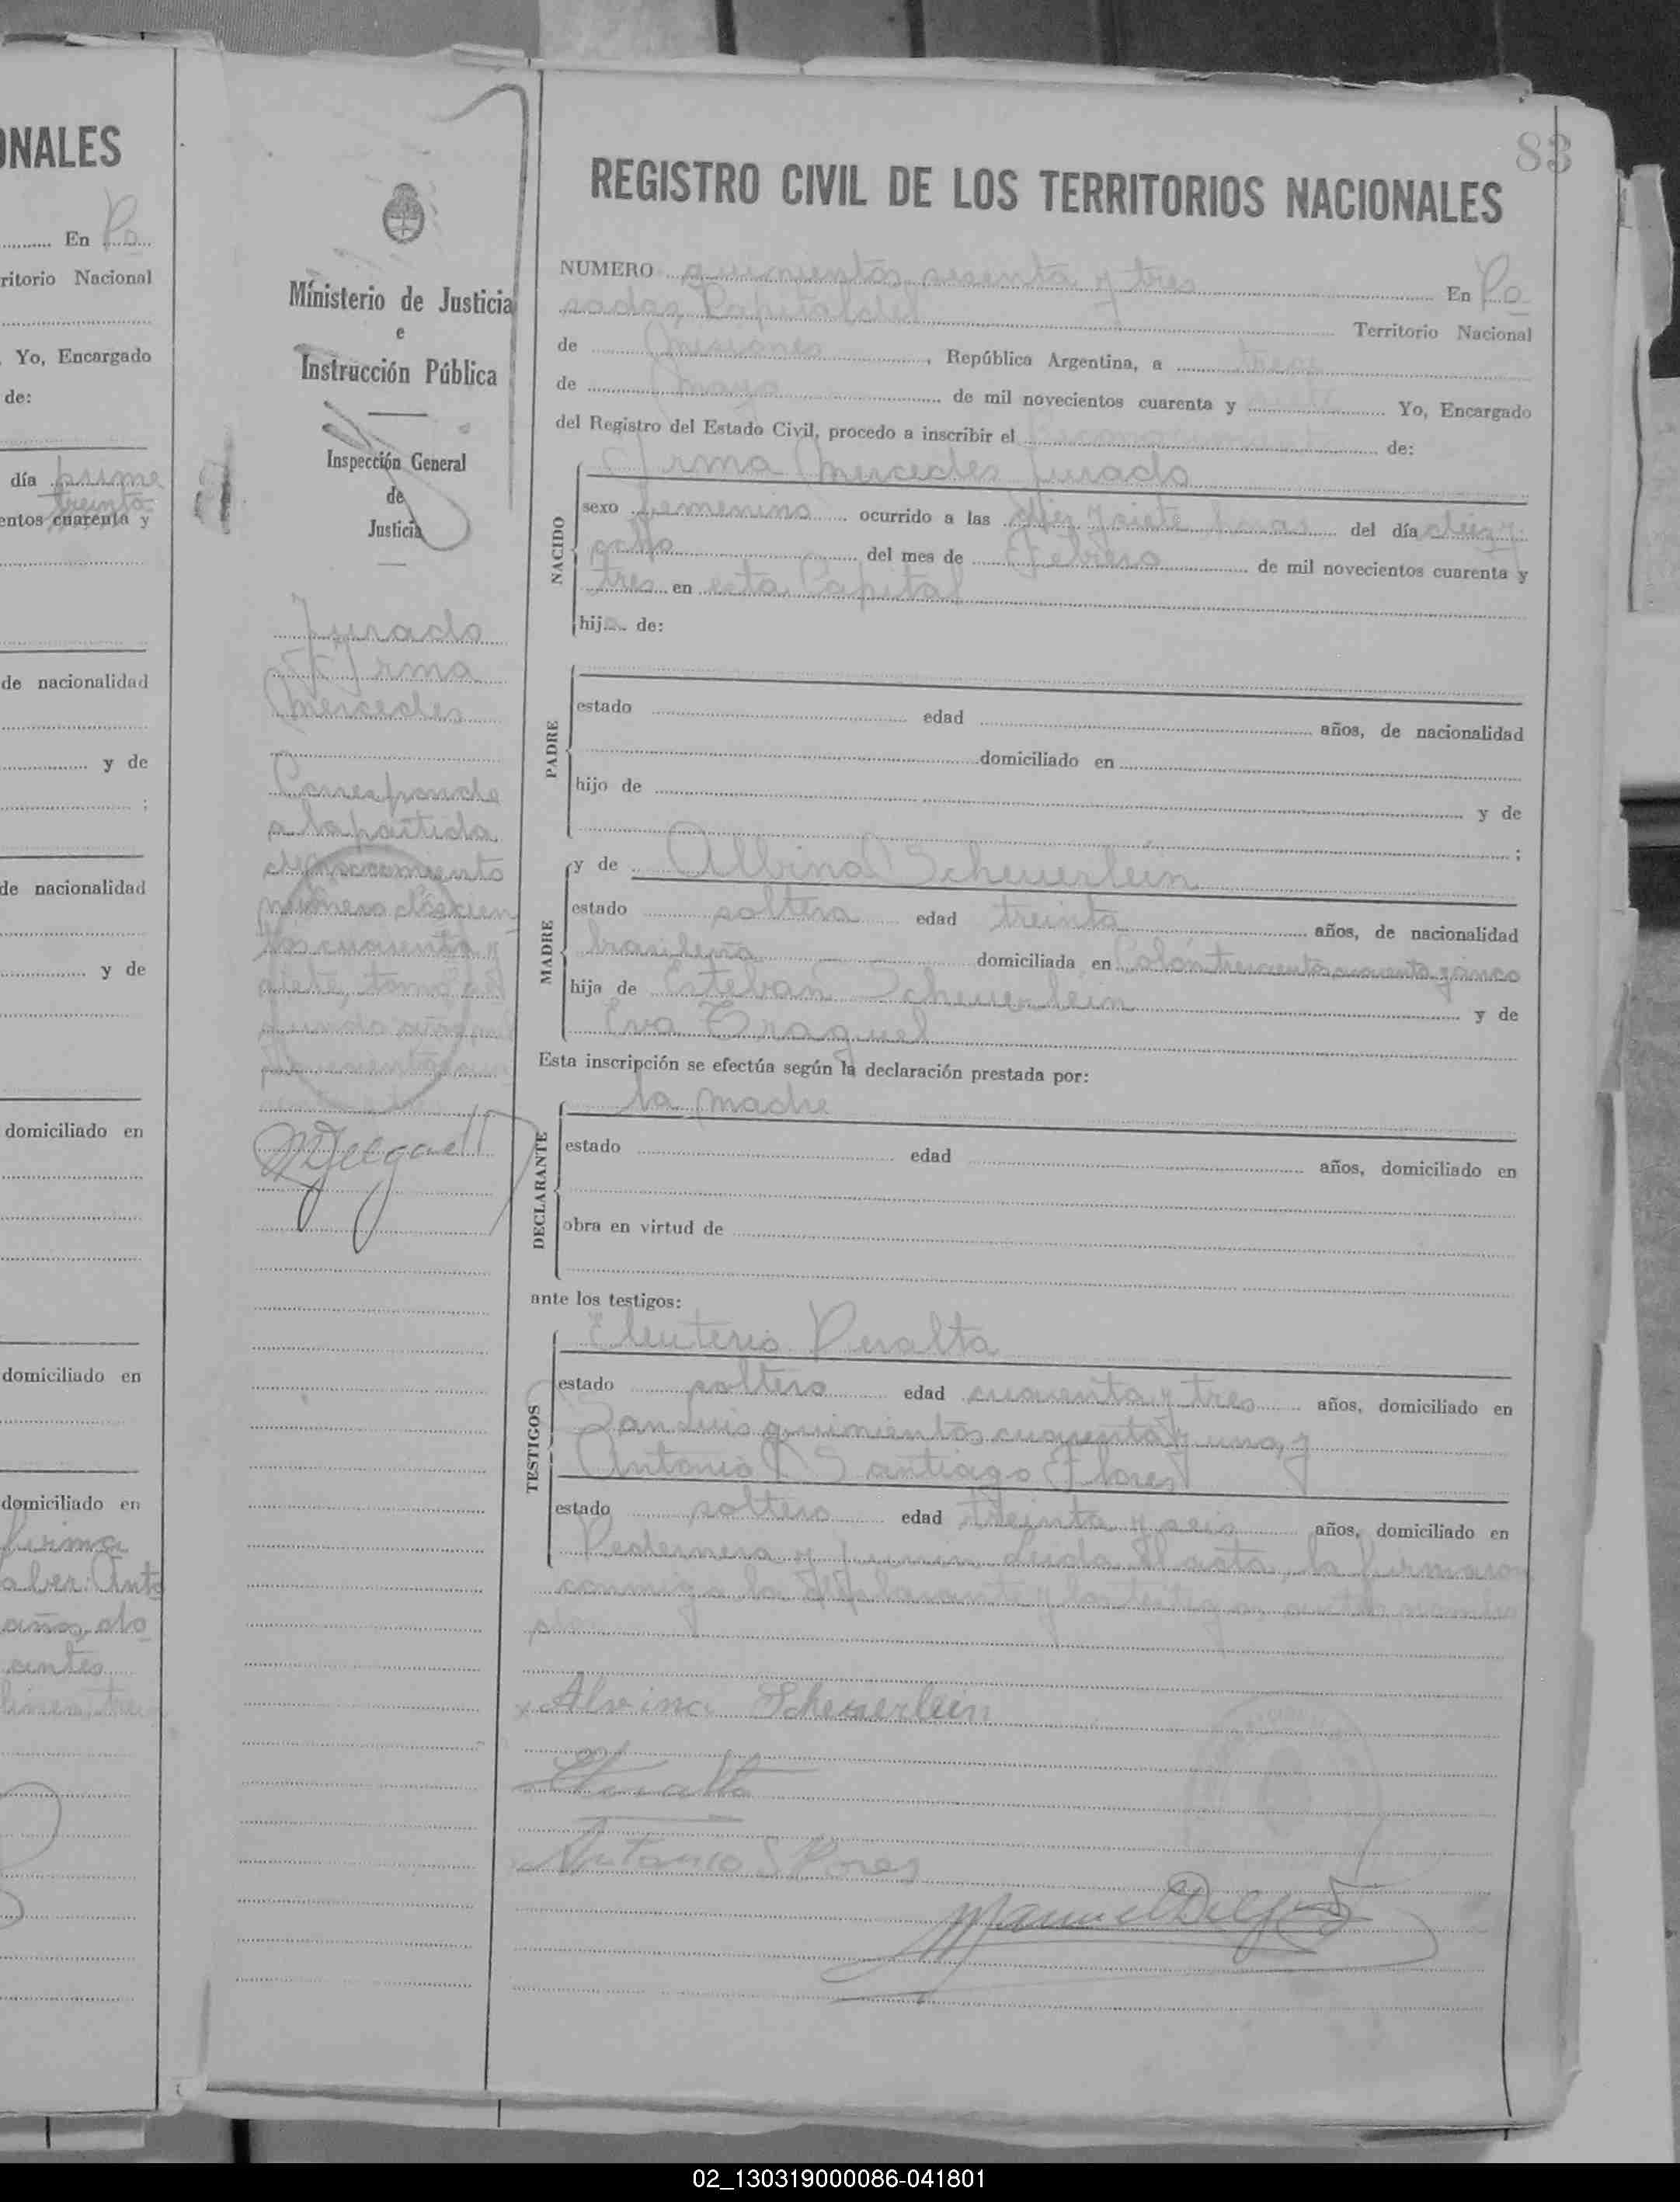 ONALES
En Po
ritorio Nacional
Yo, Encargado
de:
día prime
treinta
entos cuarenta y
de nacionalidad
y de
;
de nacionalidad
y de
domiciliado en
domiciliado en
domiciliado en
firma
años, do
Ministerio de Justicia
e
Instrucción Pública
Inspección General
de
Justicia
Jurado
Irma
Mercedes
Corresponde
a la partida
de nacimiento
número
cuarenta y
siete, tomo
83
REGISTRO CIVIL DE LOS TERRITORIOS NACIONALES
NUMERO quinientos sesenta y tres En Po
sadas, Capital del Territorio Nacional
de Misiones, República Argentina, a trece
de mayo de mil novecientos cuarenta y siete Yo, Encargado
del Registro del Estado Civil, procedo a inscribir el nacimiento de:
NACIDO
Irma Mercedes Jurado
sexo femenino ocurrido a las diez y siete horas del día diez y
ocho del mes de Febrero de mil novecientos cuarenta y
tres en esta Capital
hija de:
PADRE
estado edad años, de nacionalidad
domiciliado en
hijo de y de
;
MADRE
y de Albina Scheuerlein
estado soltera edad treinta años, de nacionalidad
brasileña domiciliada en Colón trescientos cuarenta y cinco
hija de Esteban Scheuerlein y de
Eva
Esta inscripción se efectúa según la declaración prestada por:
DECLARANTE
la madre
estado edad años, domiciliado en
obra en virtud de
ante los testigos:
TESTIGOS
Eleuterio Peralta
estado soltero edad cuarenta y tres años, domiciliado en
San Luis quinientos cuarenta y uno, y
Antonio Santiago Flores
estado soltero edad treinta y seis años, domiciliado en
Pedernera y Junin. Leida el acta, la firmaron
conmigo la declarante y los testigos
Alvina Scheuerlein
EPeralta
Antonio S Flores
Manuel Delgado
02_130319000086-041801